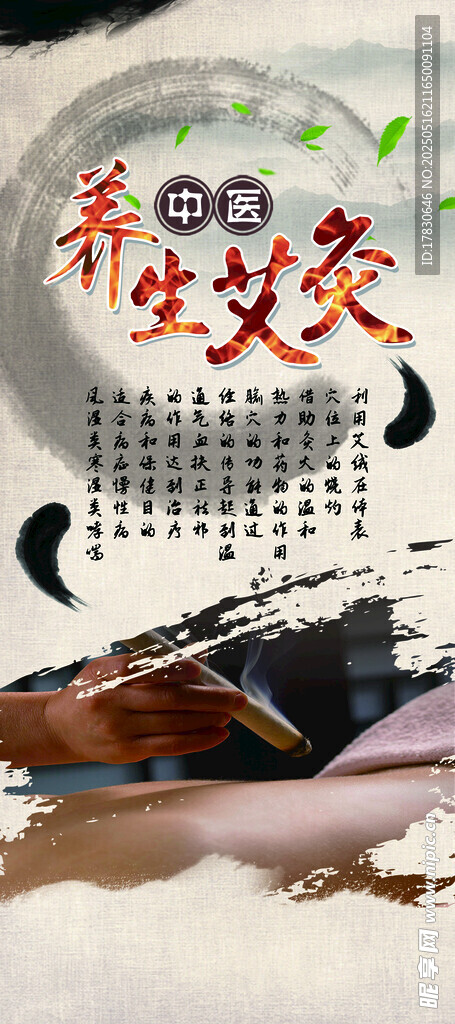 中医
养生艾灸
利用艾绒在体表
穴位上的烧灼
借助灸火的温和
热力和药物的作用
腧穴的功能通过
经络的传导起到温
通气血扶正祛邪
的作用达到治疗
疾病和保健目的
适合病症慢性病
风湿类寒湿类哮喘
ID:17830646 NO:20250516211650091104
昵享网 www.nipic.cn